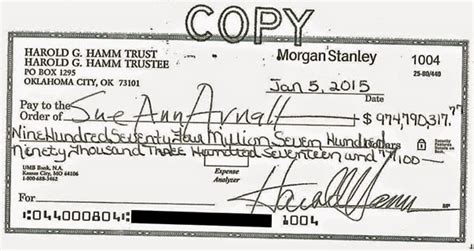 COPY
HAROLD G. HAMM TRUST Morgan Stanley 1004
HAROLD G. HAMM TRUSTEE 25-80/440
PO BOX 1295
OKLAHOMA CITY, OK 73101 Jan 5, 2015
Pay to the
Order of Sue Ann Arnall $ 974,790,317.77
Nine Hundred Seventy Four Million Seven Hundred Dollars
Ninety Thousand Three Hundred Seventeen and 77/100
UMB Bank, N.A.
Kansas City, MO 64106
1-800-688-3462
Expense
Analyzer
Harold Hamm MP
044000804 1004